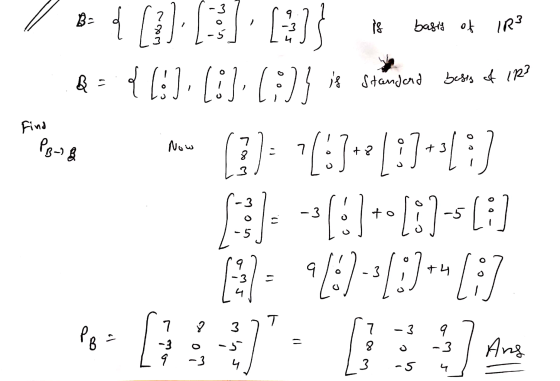 B = { [7 8 3], [-3 0 -5], [9 -3 4] } is basis of IR³
B = { [1 0 0], [0 1 0], [0 0 1] } is standard basis of IR³
Find
P_B→B Now [7 8 3] = 7 [1 0 0] + 8 [0 1 0] + 3 [0 0 1]
[-3 0 -5] = -3 [1 0 0] + 0 [0 1 0] - 5 [0 0 1]
[9 -3 4] = 9 [1 0 0] - 3 [0 1 0] + 4 [0 0 1]
P_B = [7 8 3
-3 0 -5
9 -3 4]ᵀ = [7 -3 9
8 0 -3
3 -5 4] Ans